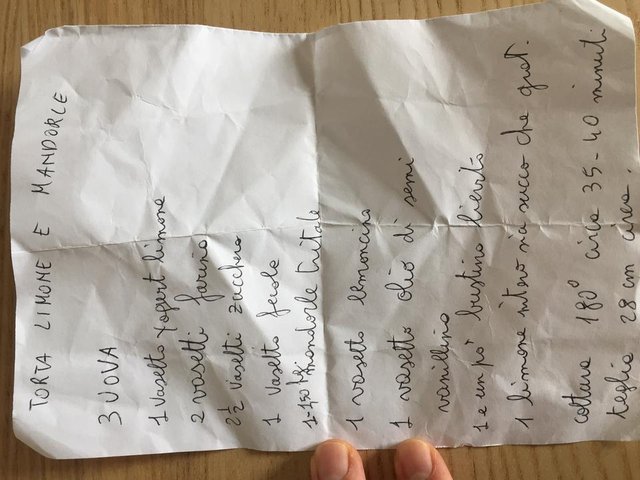 TORTA LIMONE E MANDORLE
3 UOVA
1 Vasetto yogurt limone
2 vasetti farina
2 1/2 vasetti zucchero
1 Vasetto fecola
mandorle tritate
1 vasetto lemoncino
1 vasetto olio di semi
vanillina
1 e un pò bustina lievito
1 limone intero sia succo che grat.
cottura 180° circa 35-40 minuti
teglia 28 cm circa.